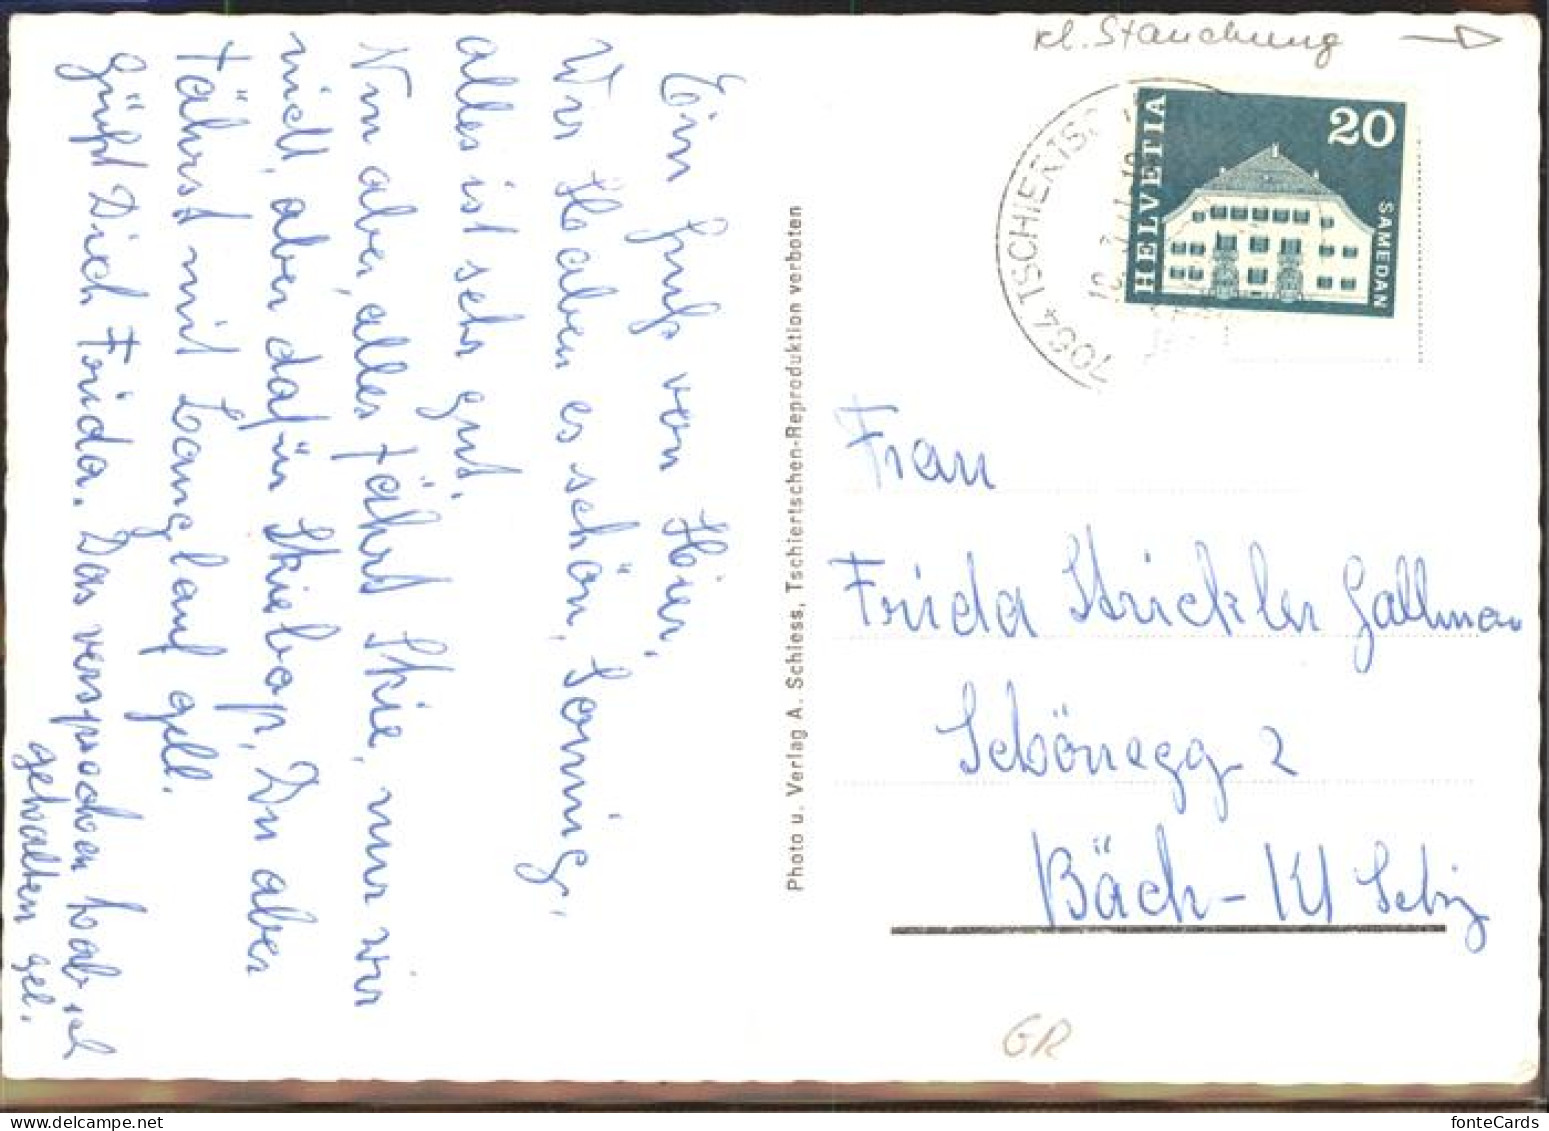 kl. Stauchung
HELVETIA
20
SAMEDAN
7064 TSCHIERTSCHEN
Ein Gruss von Hier,
Wir Haben es schön, Sonnig,
alles ist sehr gut.
Nun aber, alles fährt Skie, nur wir
nicht, aber dafür Skiebap, Du aber
fährst mit Langlauf gell.
Grüsst Dich Frida. Das versprochen hab ich
gehalten gel.
Photo u. Verlag A. Schiess, Tschiertschen-Reproduktion verboten
Frau
Frieda Strickler Gallman
Schönegg 2
Bäch - Kt Schiz
GR
fonteCards